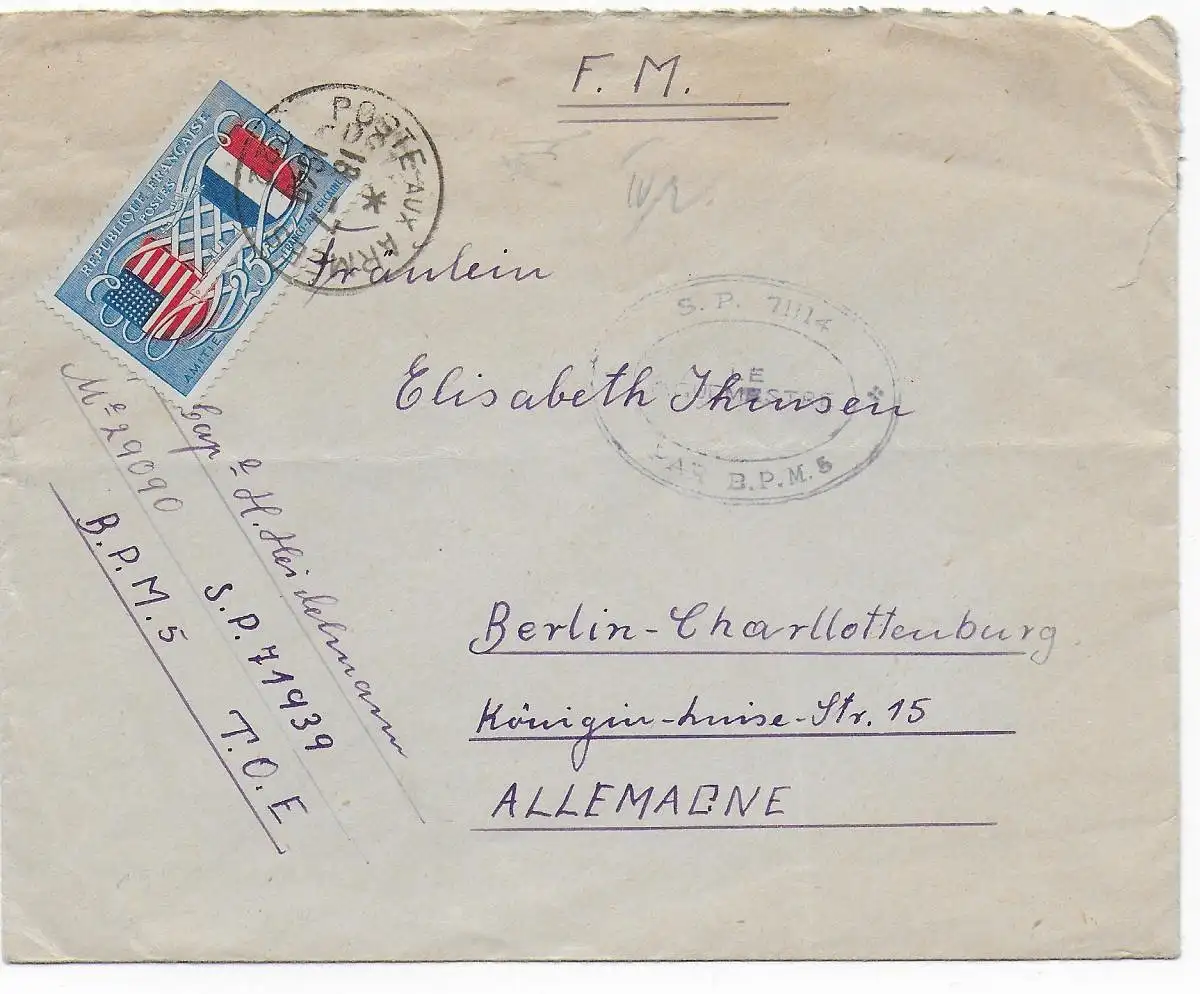 F. M.
REPUBLIQUE FRANÇAISE
POSTES
25F
AMITIE FRANCO-AMERICAINE
POSTE AUX ARMEES
18
Fräulein
Elisabeth
S. P. 71114
PAR B.P.M. 5
Berlin-Charllottenburg
Königin-Luise-Str. 15
ALLEMAGNE
Cap e H. Heidelmann
Mle 29090 S.P. 71939
B.P.M. 5 T.O.E